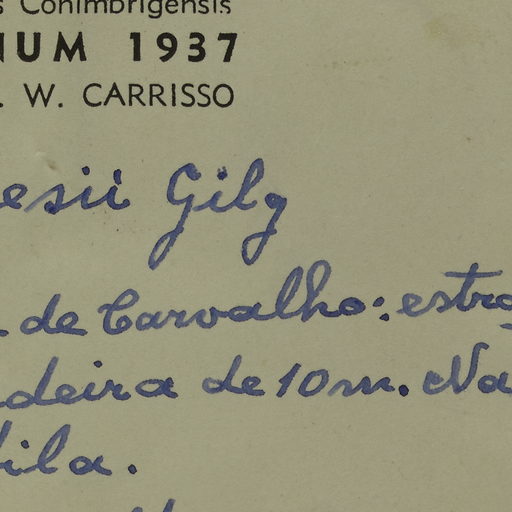 s Conimbrigensis
NUM 1937
. W. CARRISSO
esii Gilg
de Carvalho: estra
deira de 10m. Na
ila.